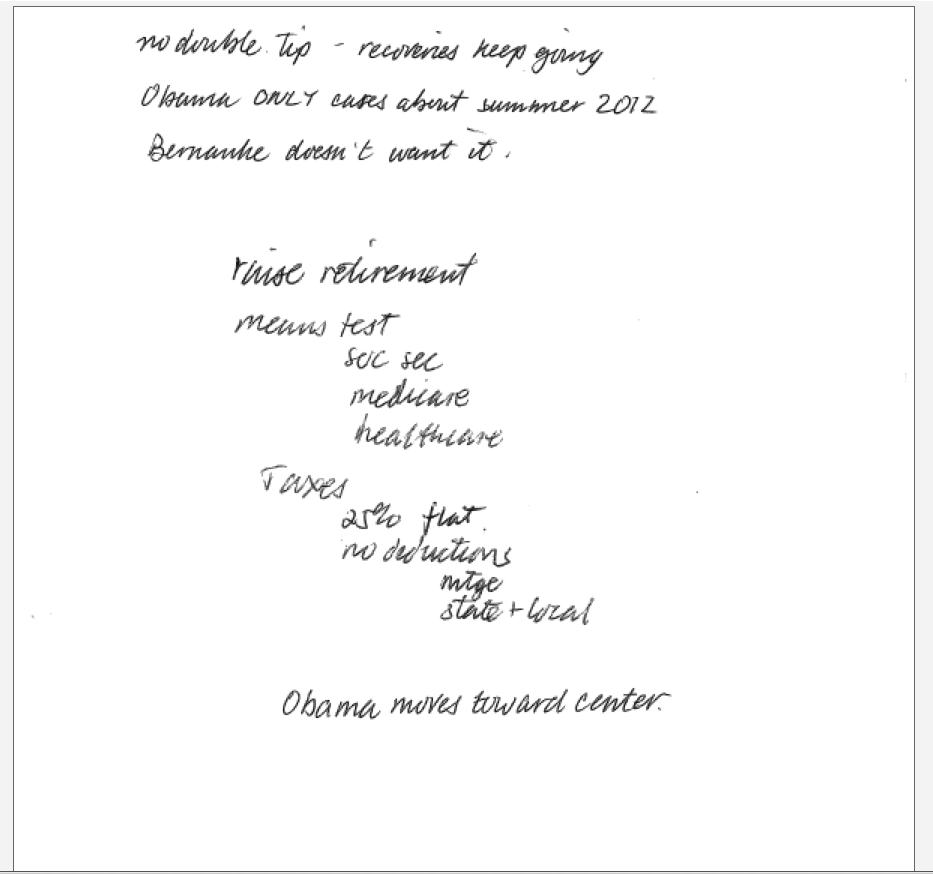 no double tip - recoveries keep going
Obama ONLY cares about summer 2012
Bernanke doesn't want it.
raise retirement
means test
soc sec
medicare
healthcare
Taxes
25% flat
no deductions
mtge
state + local
Obama moves toward center.